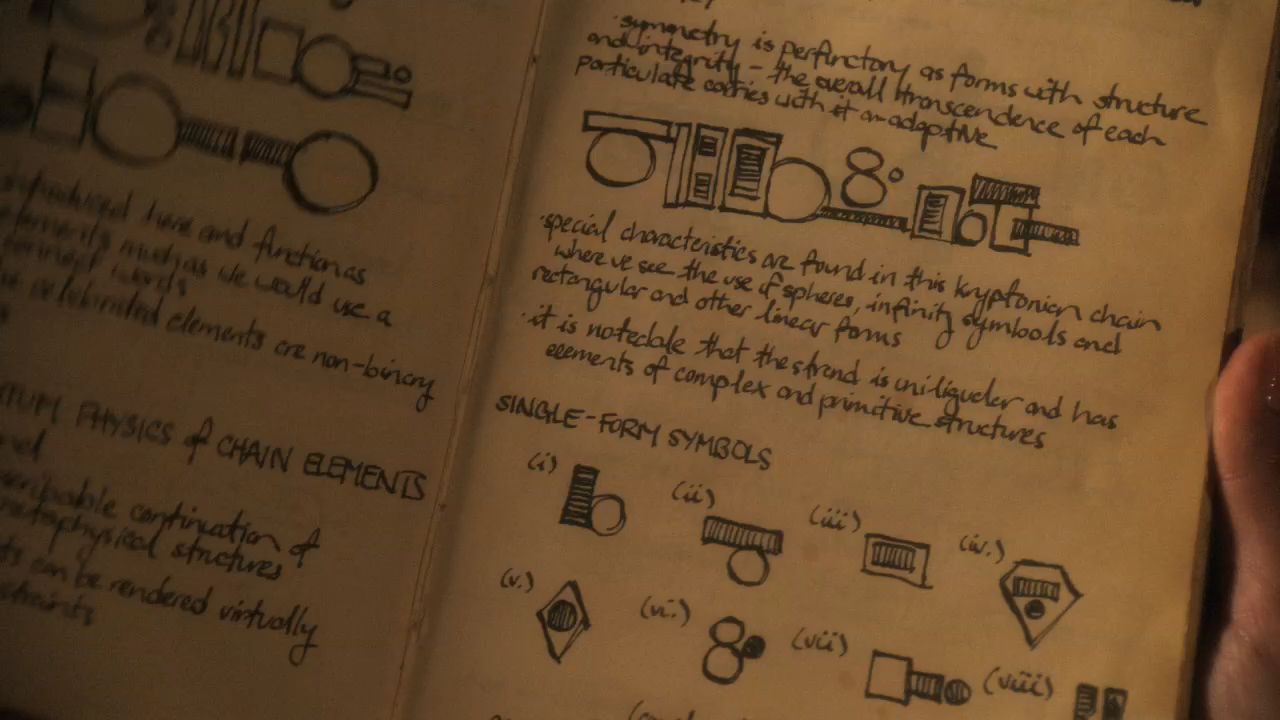 introduced here and function as
elements much as we would use a
words
celebrated elements are non-binary
PHYSICS of CHAIN ELEMENTS
continuation of
metaphysical structures
can be rendered virtually
·symmetry is perfinctory as forms with structure
and integrity – the overall transcendence of each
particulate carries with it an adaptive
·special characteristics are found in this kryptonian chain
where we see the use of spheres, infinity symbools and
rectangular and other linear forms
·it is noteable that the strand is uniliguler and has
elements of complex and primitive structures
SINGLE-FORM SYMBOLS
(i)
(ii)
(iii)
(iv.)
(v.)
(vi.)
(vii)
(viii)